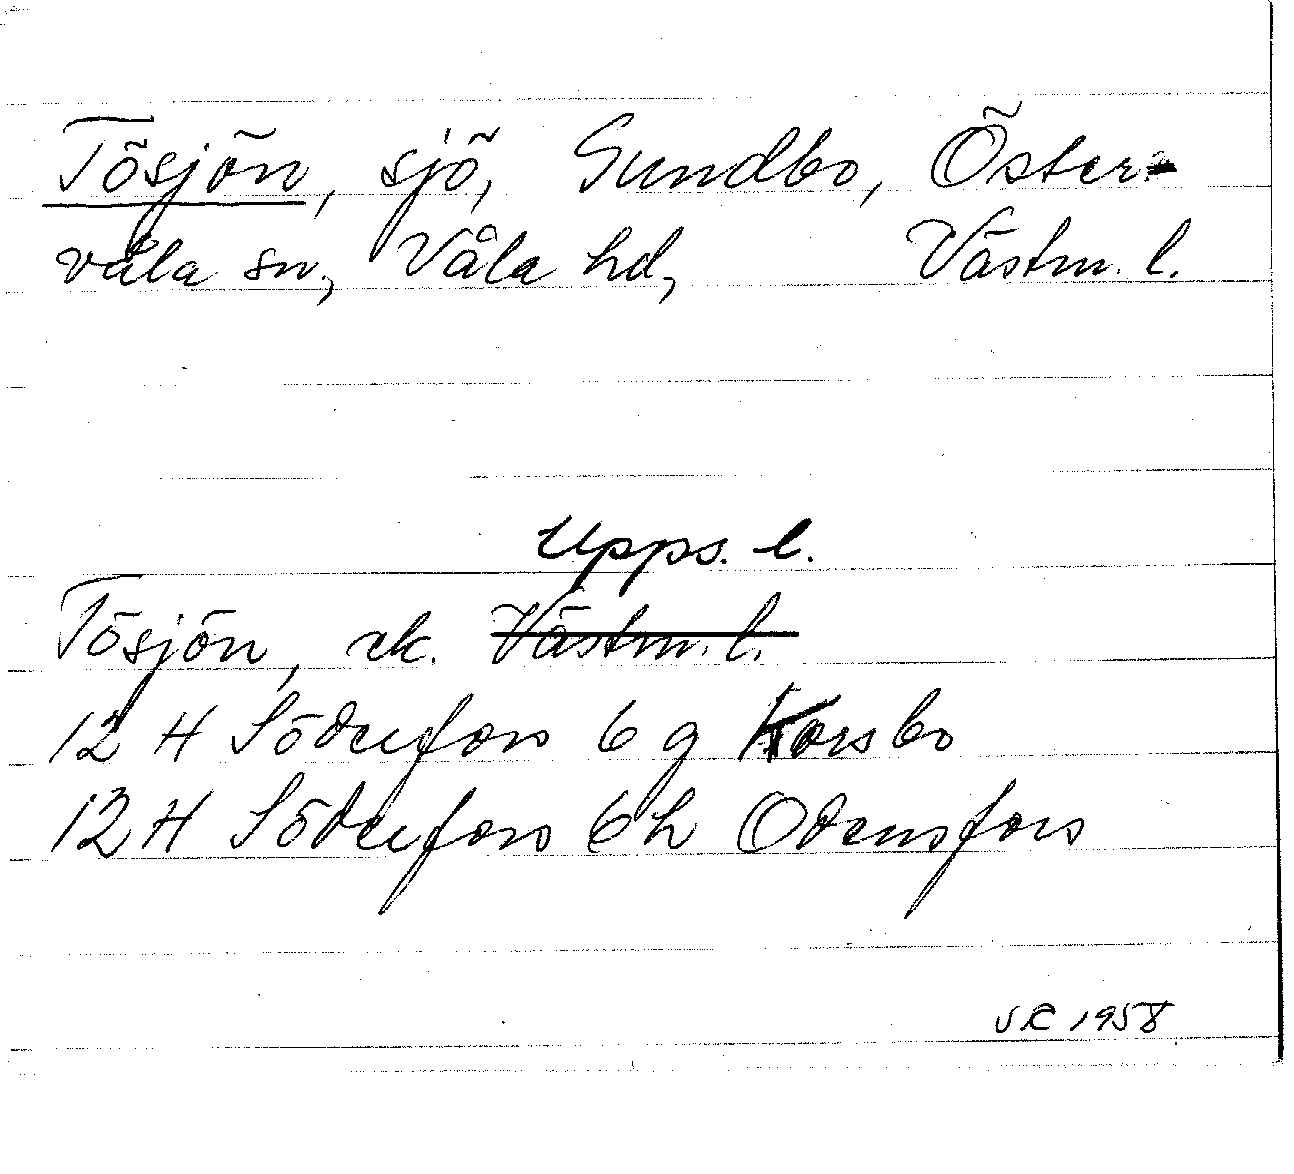 Tösjön, sjö, Sundbo, Öster-
våla sn, Våla hd, Västm. l.
Upps. l.
Tösjön, ek. Västm. l.
12 H Söderfors 6 g Korsbo
12 H Söderfors 6 h Odensfors
1958